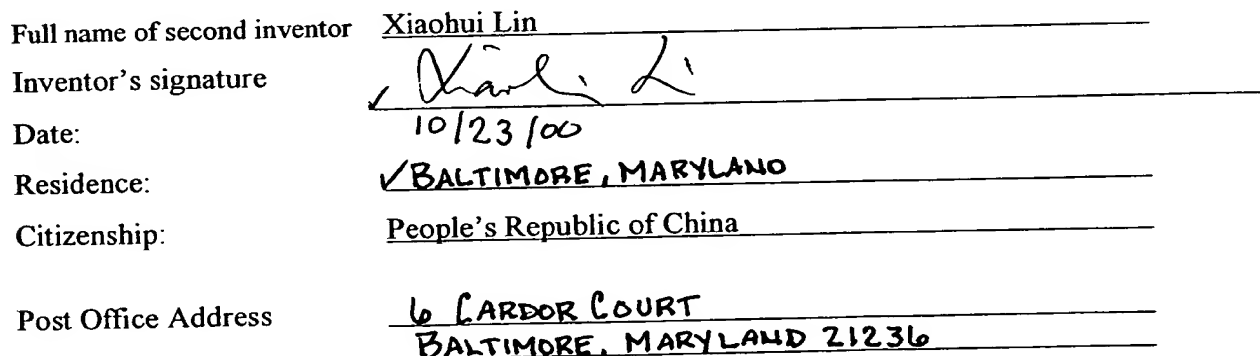 Full name of second inventor Xiaohui Lin
Inventor's signature ✓
Date: 10/23/00
Residence: ✓ BALTIMORE, MARYLAND
Citizenship: People's Republic of China
Post Office Address 6 CARDOR COURT
BALTIMORE, MARYLAND 21236